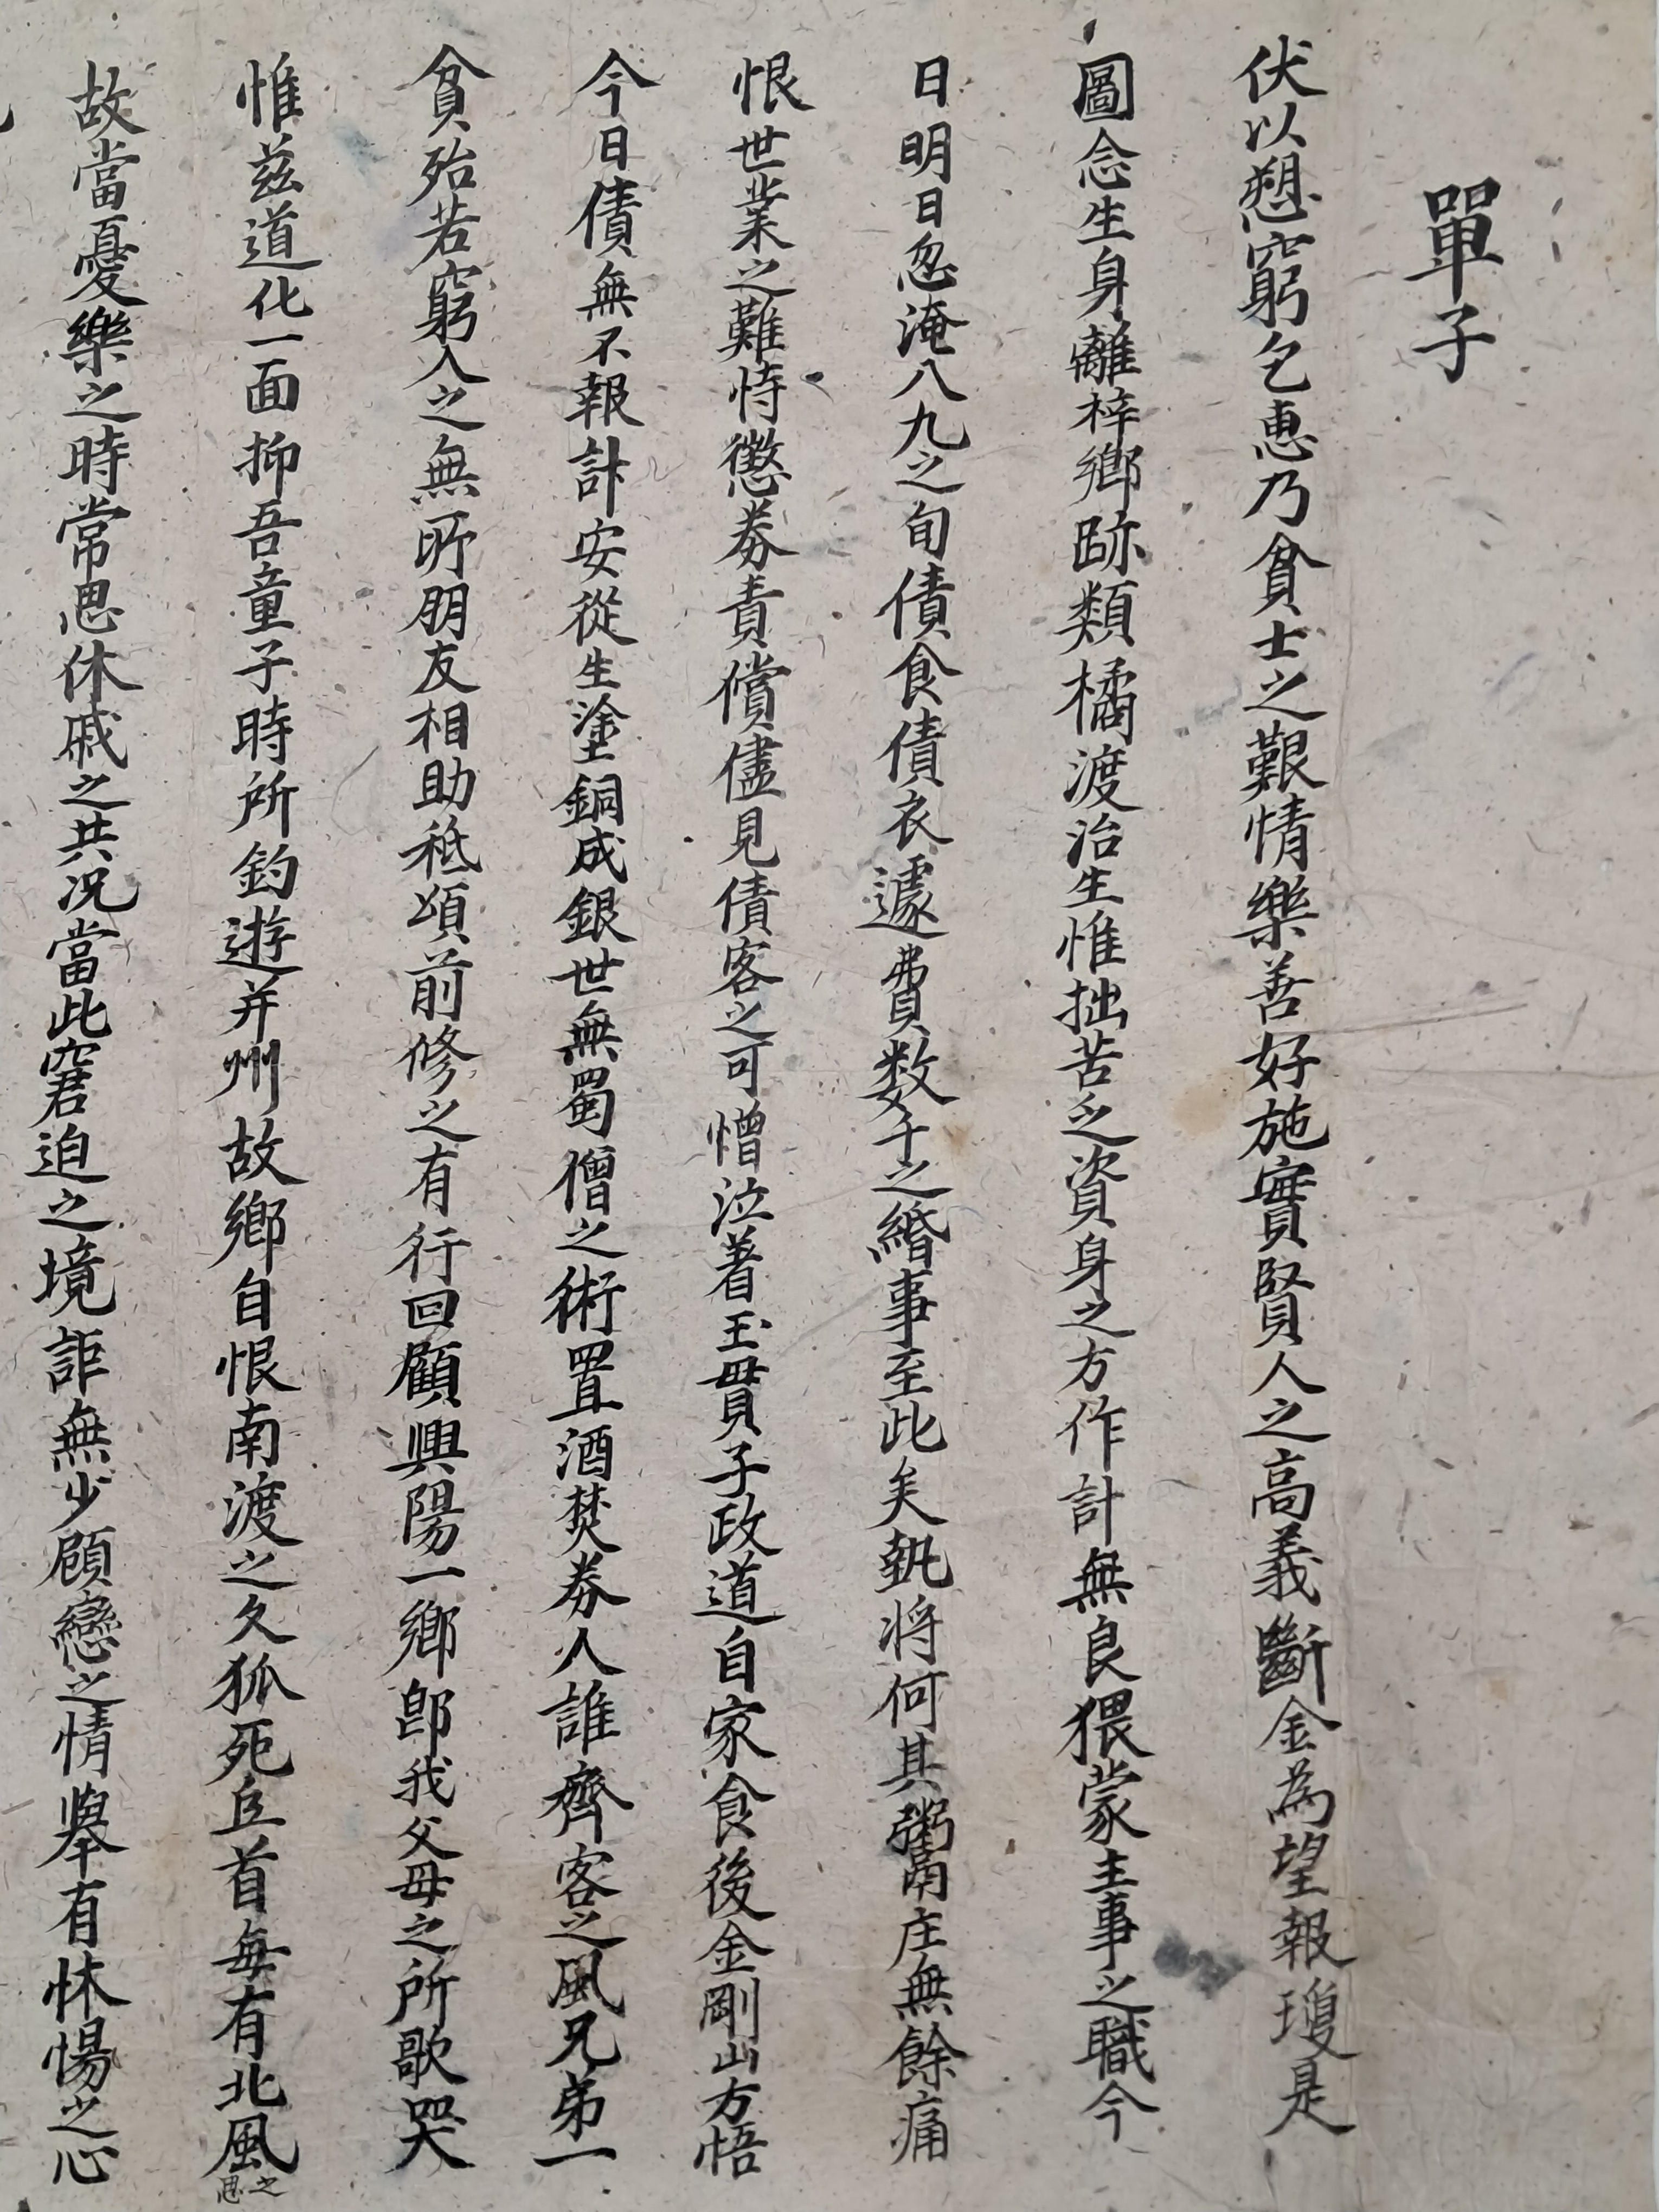 單子
伏以愬窮乞惠乃貧士之艱情樂善好施實賢人之高義斷金為望報瓊是
圖念生身離梓鄉跡類橘渡治生惟拙苦乏資身之方作計無良猥蒙主事之職今
日明日忽淹八九之旬債食債衣遽費数千之緡事至此矣執將何其粥鬻庄無餘痛
恨世業之難恃懲劵責償儘見債客之可憎泣着玉貫子政道自家食後金剛山方悟
今日債無不報計安從生塗銅成銀世無蜀僧之術置酒焚劵人誰齊客之風兄弟一
貧殆若窮人之無所朋友相助秪頌前修之有行回顧興陽一鄉卽我父母之所歌哭
惟玆道化一面抑吾童子時所釣遊并州故鄉自恨南渡之久狐死丘首每有北風之思
故當憂樂之時常思休戚之共况當此窘迫之境詎無少顧戀之情擧有怵惕之心